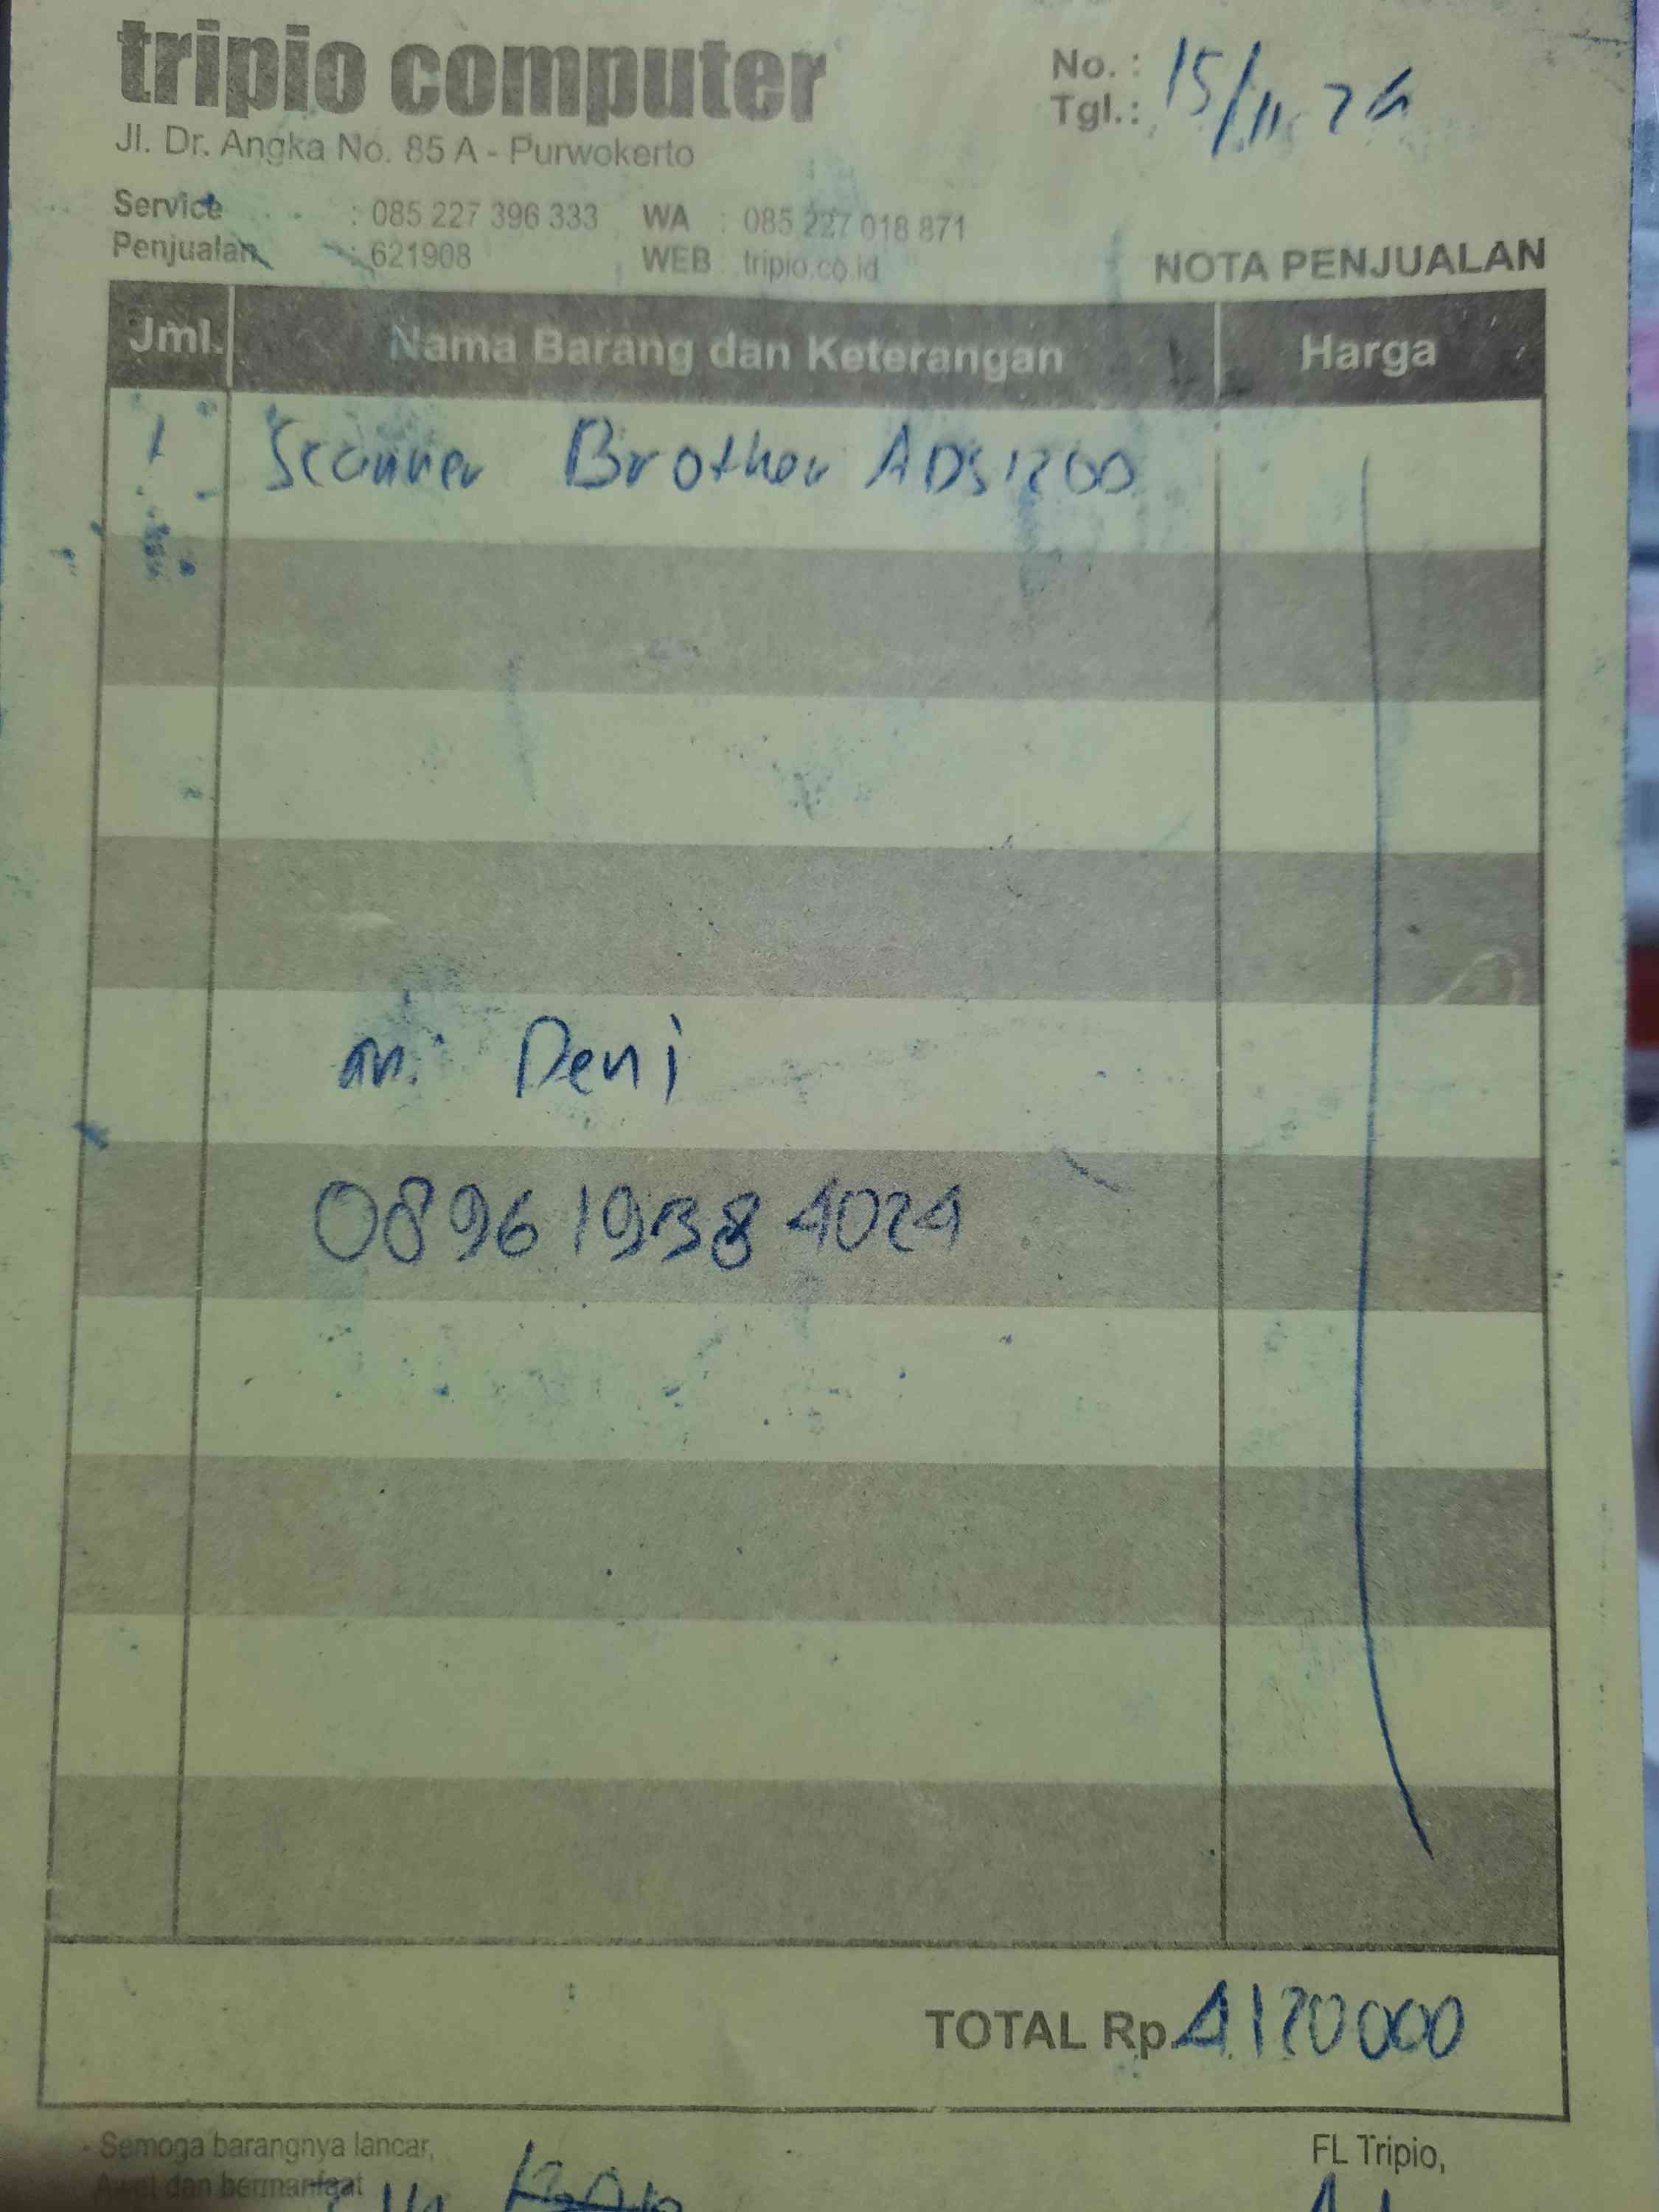 tripio computer
No. :
Jl. Dr. Angka No. 85 A - Purwokerto
Tgl.: 15/11 24
Service : 085 227 396 333 WA : 085 227 018 871
Penjualan : 621908 WEB tripio.co.id
NOTA PENJUALAN
Jml. Nama Barang dan Keterangan Harga
1 Scanner Brother ADS1200
an. Deni
0896 1938 4024
TOTAL Rp. 4120000
Semoga barangnya lancar,
Awet dan bermanfaat
FL Tripio,